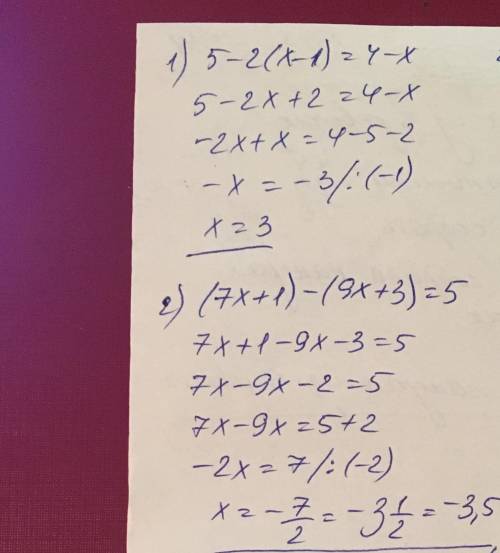 1) 5-2(x-1)=4-x
5-2x+2=4-x
-2x+x=4-5-2
-x=-3/:(-1)
x=3
2) (7x+1)-(9x+3)=5
7x+1-9x-3=5
7x-9x-2=5
7x-9x=5+2
-2x=7/:(-2)
x=-7/2=-3 1/2=-3,5